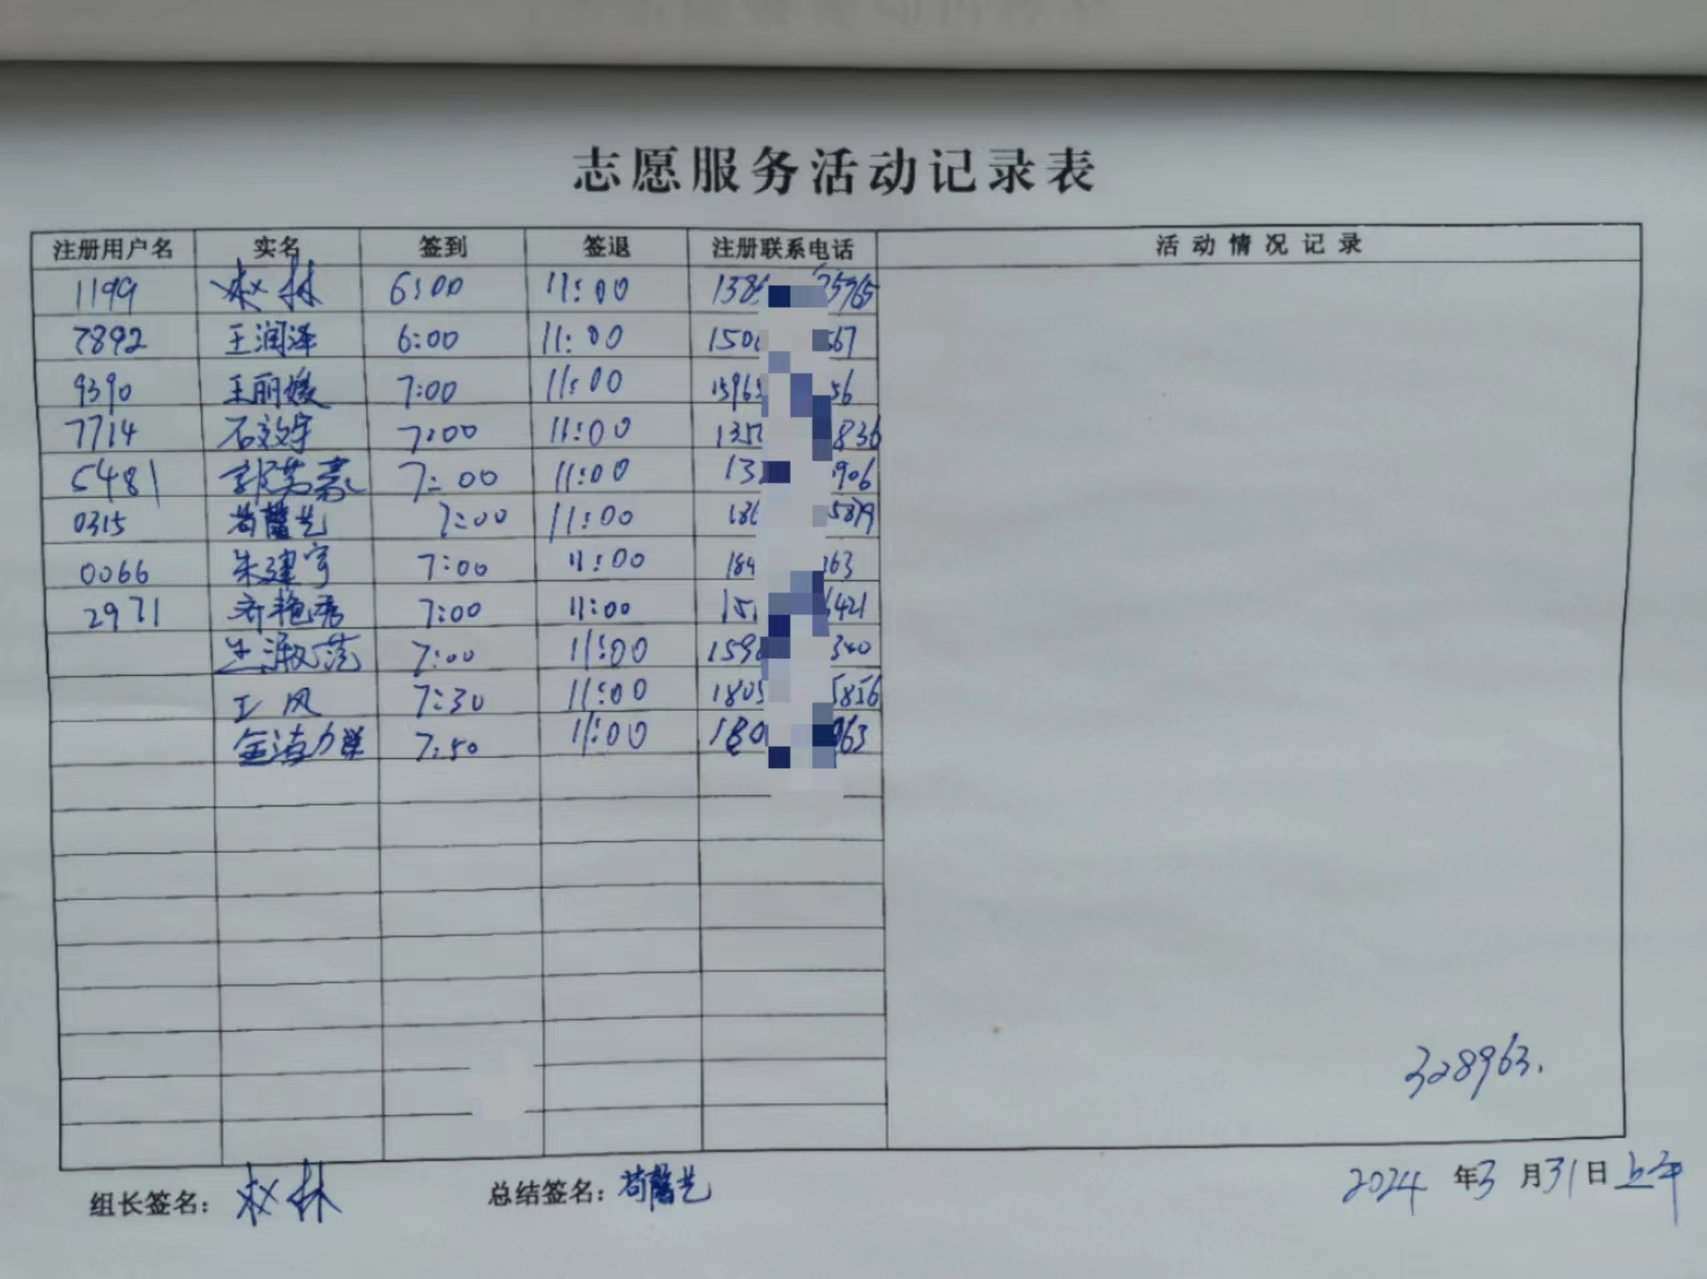 志愿服务活动记录表
注册用户名 实名 签到 签退 注册联系电话 活动情况记录
1199 赵林 6:00 11:00 138 5765
7892 王润泽 6:00 11:00 150 567
9390 王丽媛 7:00 11:00 1596 56
7714 石效宇 7:00 11:00 135 836
5481 7:00 11:00 13 906
0315 苟馨艺 7:00 11:00 18 5879
0066 朱建宇 7:00 11:00 184 363
2971 齐艳秀 7:00 11:00 15 421
7:00 11:00 159 340
王风 7:30 11:00 1805 5856
7:50 11:00 180 063
328963.
组长签名: 赵林 总结签名: 苟馨艺 2024 年 3 月 31 日 上午